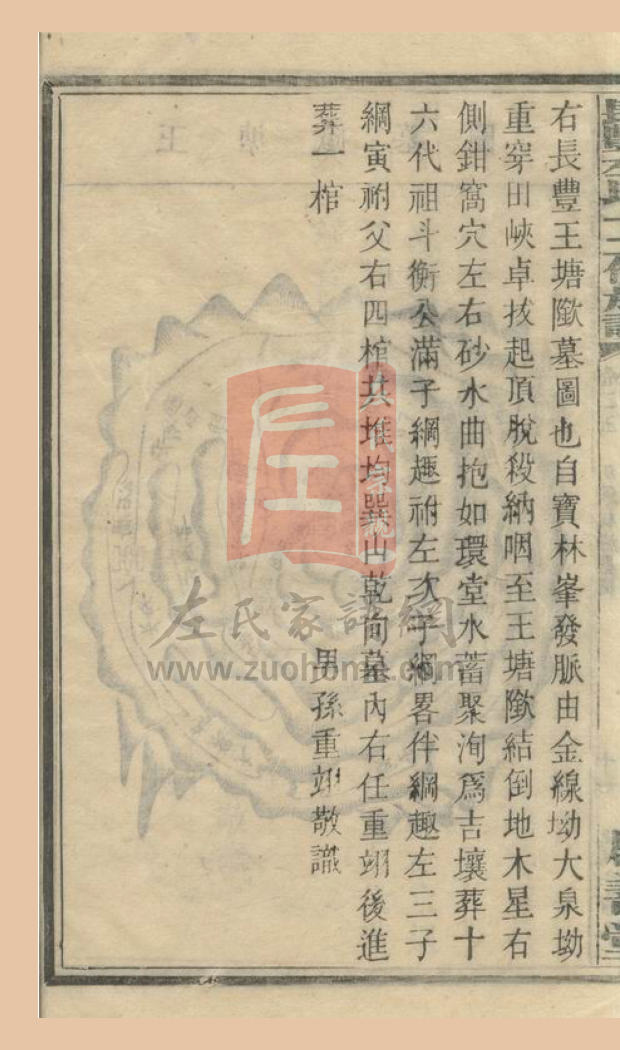 右長豐王塘隞墓圖也自寶林峯發脈由金線坳大泉坳
重穿田峽卓拔起頂脫殺納咽至王塘隞結倒地木星右
側鉗窩穴左右砂水曲抱如環堂水蓄聚洵爲吉壤葬十
六代祖斗衡公滿子綱趣祔左次子綱畧伴綱趣左三子
綱寅祔父右四棺共堆均巽山乾向墓內右任重翊後進
葬一棺
男孫重翊敬識
左氏家譜網
www.zuohome.com